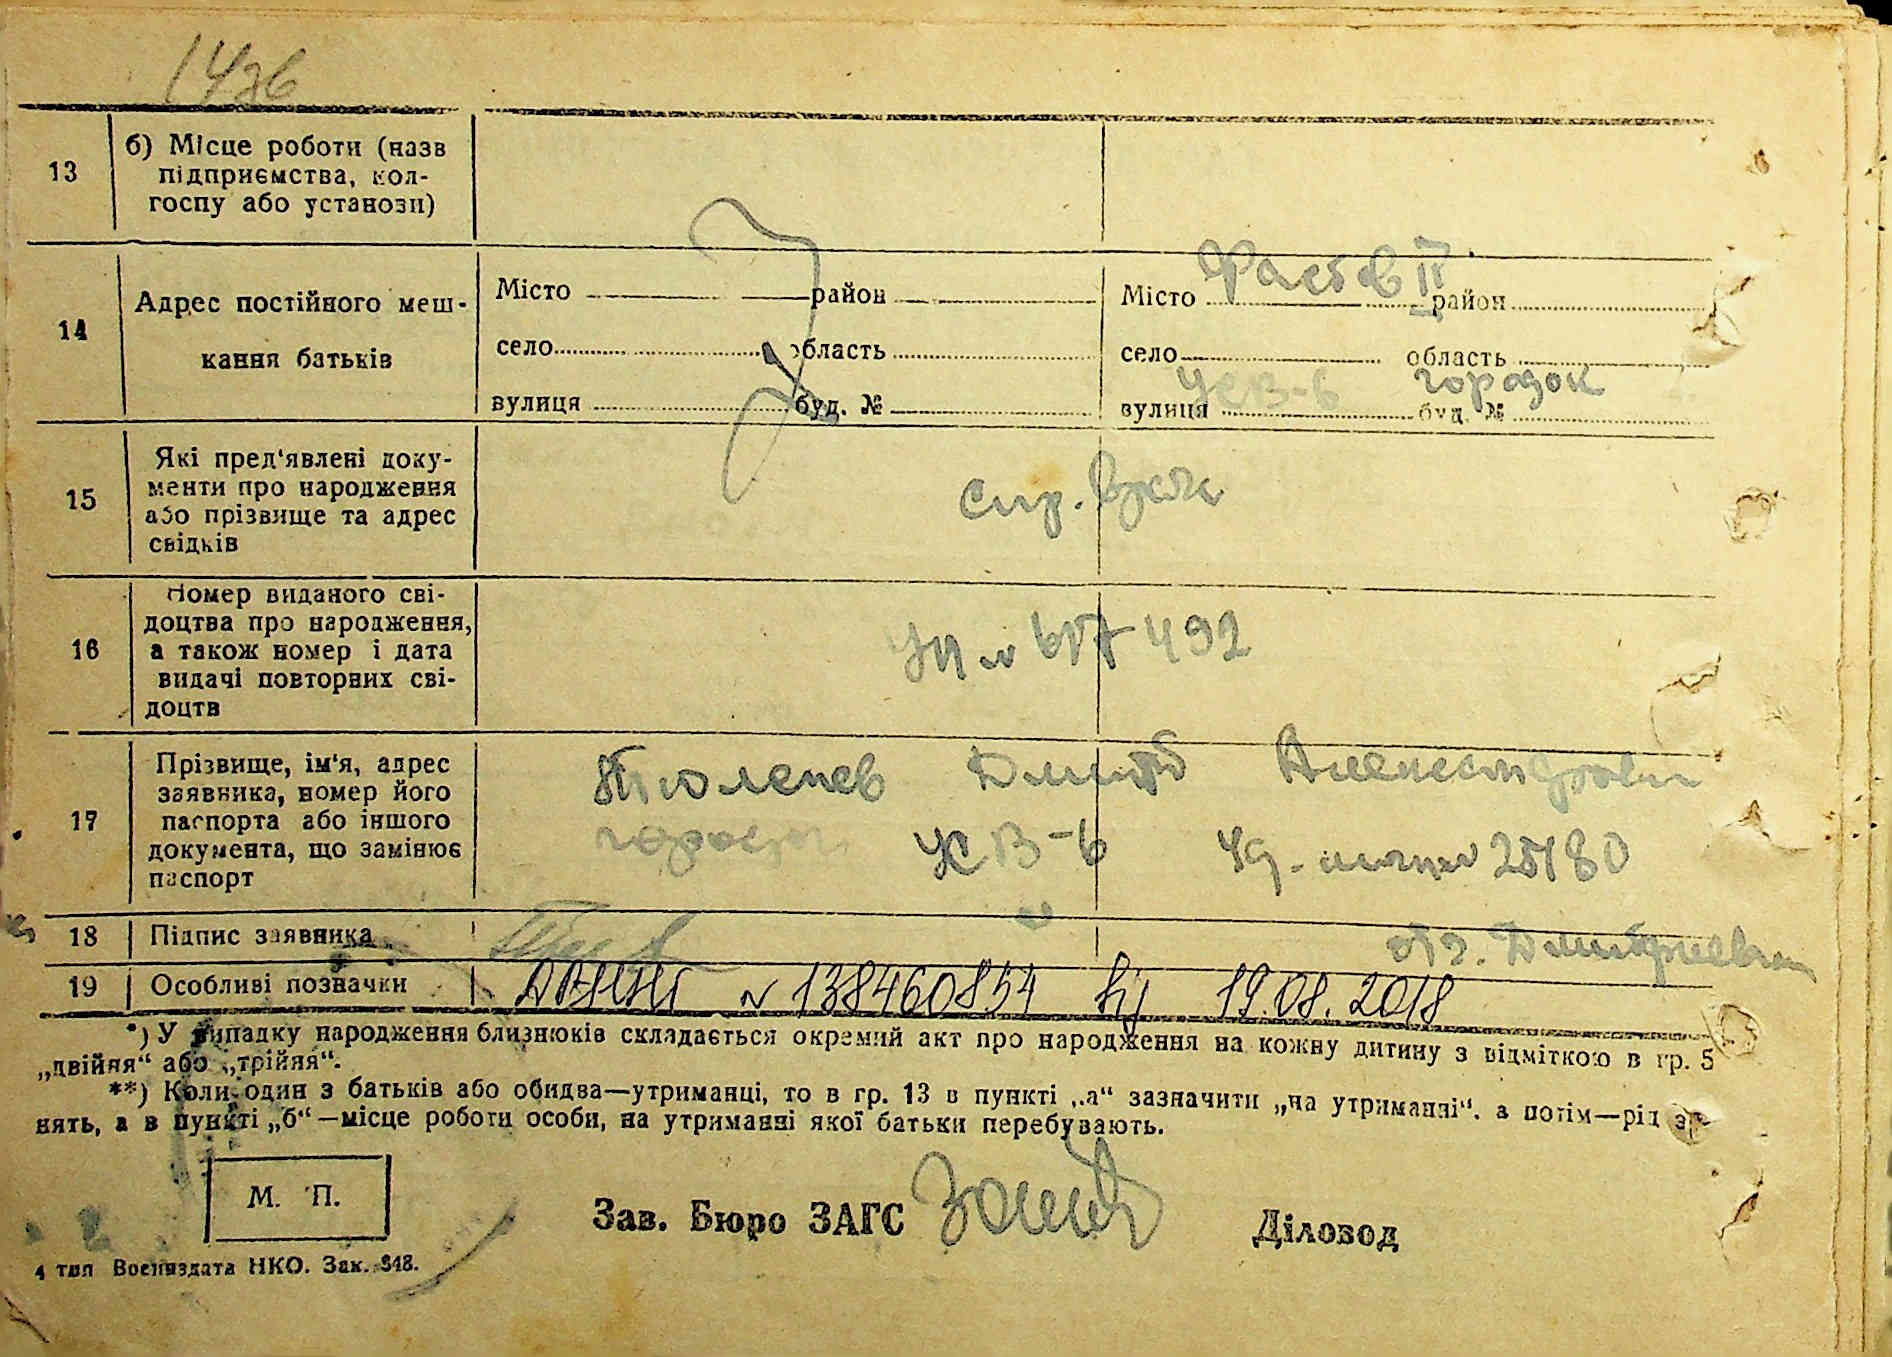 1436
13
б) Місце роботи (назв
підприємства, кол-
госпу або установи)
14
Адрес постійного меш-
кання батьків
Місто район
село область
вулиця буд. №
Місто Фастов II район
село область
УСВ-6 городок
вулиця буд. №
15
Які пред'явлені доку-
менти про народження
або прізвище та адрес
свідків
Спр.
16
Номер виданого сві-
доцтва про народження,
а також номер і дата
видачі повторних сві-
доцтв
492
17
Прізвище, ім'я, адрес
заявника, номер його
паспорта або іншого
документа, що замінює
паспорт
Дмитр Александрович
УСВ-6
18 Підпис заявника
Дмитриевич
19 Особливі позначки
ДРАЦСГ № 138460854 від 19.08.2018
*) У випадку народження близнюків складається окремий акт про народження на кожну дитину з відміткою в гр. 5
„двійня“ або „трійня“.
**) Коли один з батьків або обидва—утриманці, то в гр. 13 в пункті „а“ зазначити „на утриманні“, а потім—рід за-
нять, а в пункті „б“—місце роботи особи, на утриманні якої батьки перебувають.
М. П.
Зав. Бюро ЗАГС
Діловод
4 тип Воениздата НКО. Зак. 348.